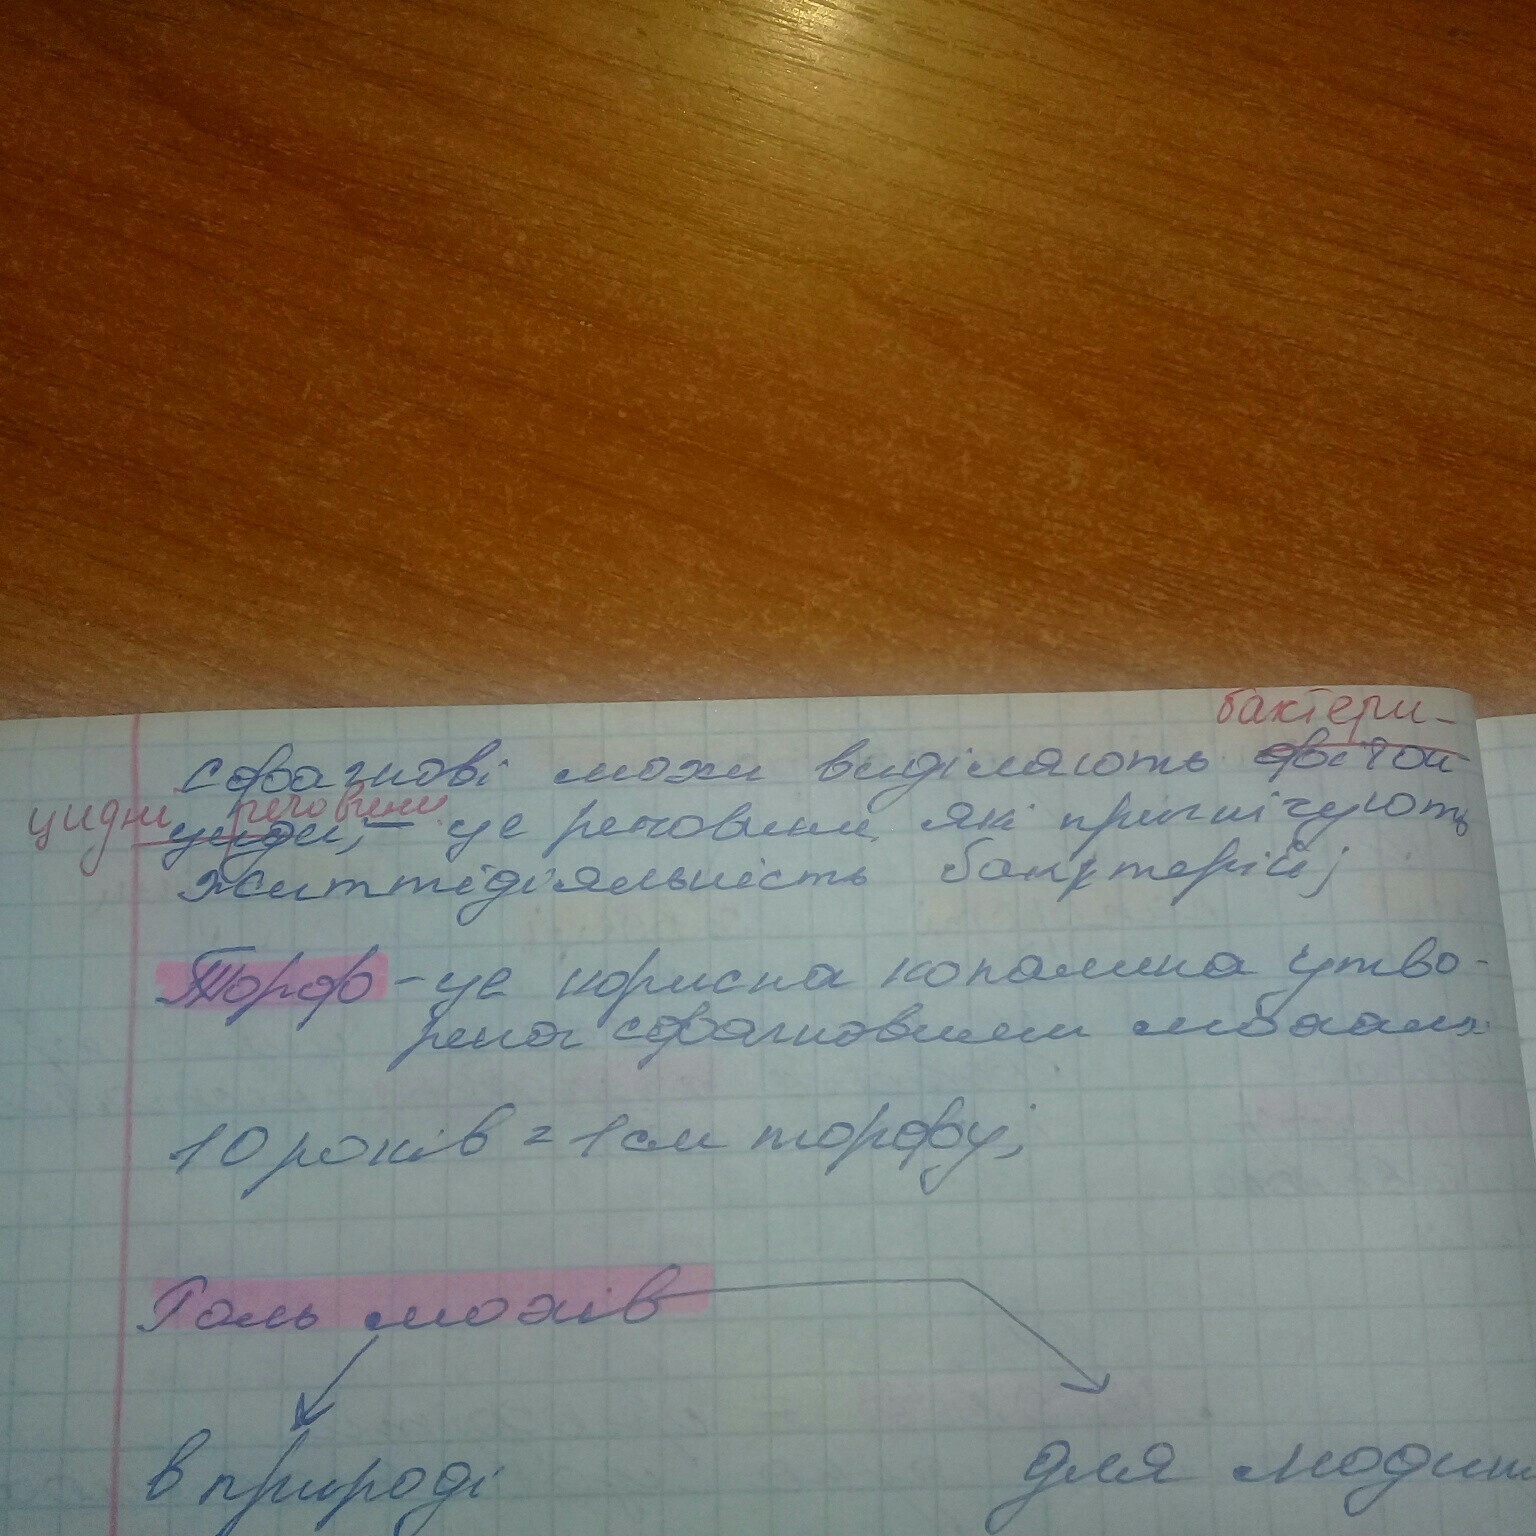 бактери-
Сфагнові мохи виділяють фітон-
цидні речовини
циди, – це речовини, які пригнічують
життєдіяльність бактерій;
Торф – це корисна копалина утво-
рена сфагновими мохами
10 років = 1 см торфу;
Роль мохів
в природі
для людини